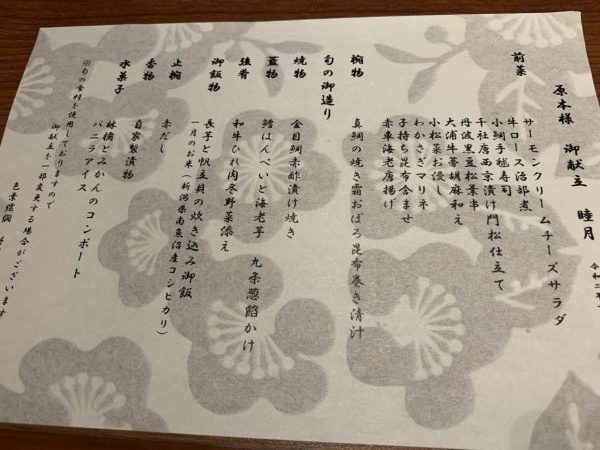 原本様 御献立 睦月
令和二年
前菜
サーモンクリームチーズサラダ
牛ロース治部煮
小鯛手毬寿司
千社唐西京漬け門松仕立て
丹波黒豆松葉串
大浦牛蒡胡麻和え
小松菜お浸し
わかさぎマリネ
子持ち昆布含ませ
赤車海老唐揚げ
椀物
真鯛の焼き霜おぼろ昆布巻き清汁
旬の御造り
焼物
金目鯛赤酢漬け焼き
蓋物
鱈はんぺいと海老芋 九条葱餡かけ
強肴
和牛ひれ肉冬野菜添え
御飯物
長芋と帆立貝の炊き込み御飯
一月のお米(新潟県南魚沼産コシヒカリ)
止椀
赤だし
香物
自家製漬物
水菓子
林檎とみかんのコンポート
バニラアイス
※旬の食材を使用しておりますので
御献立を一部変更する場合がございます